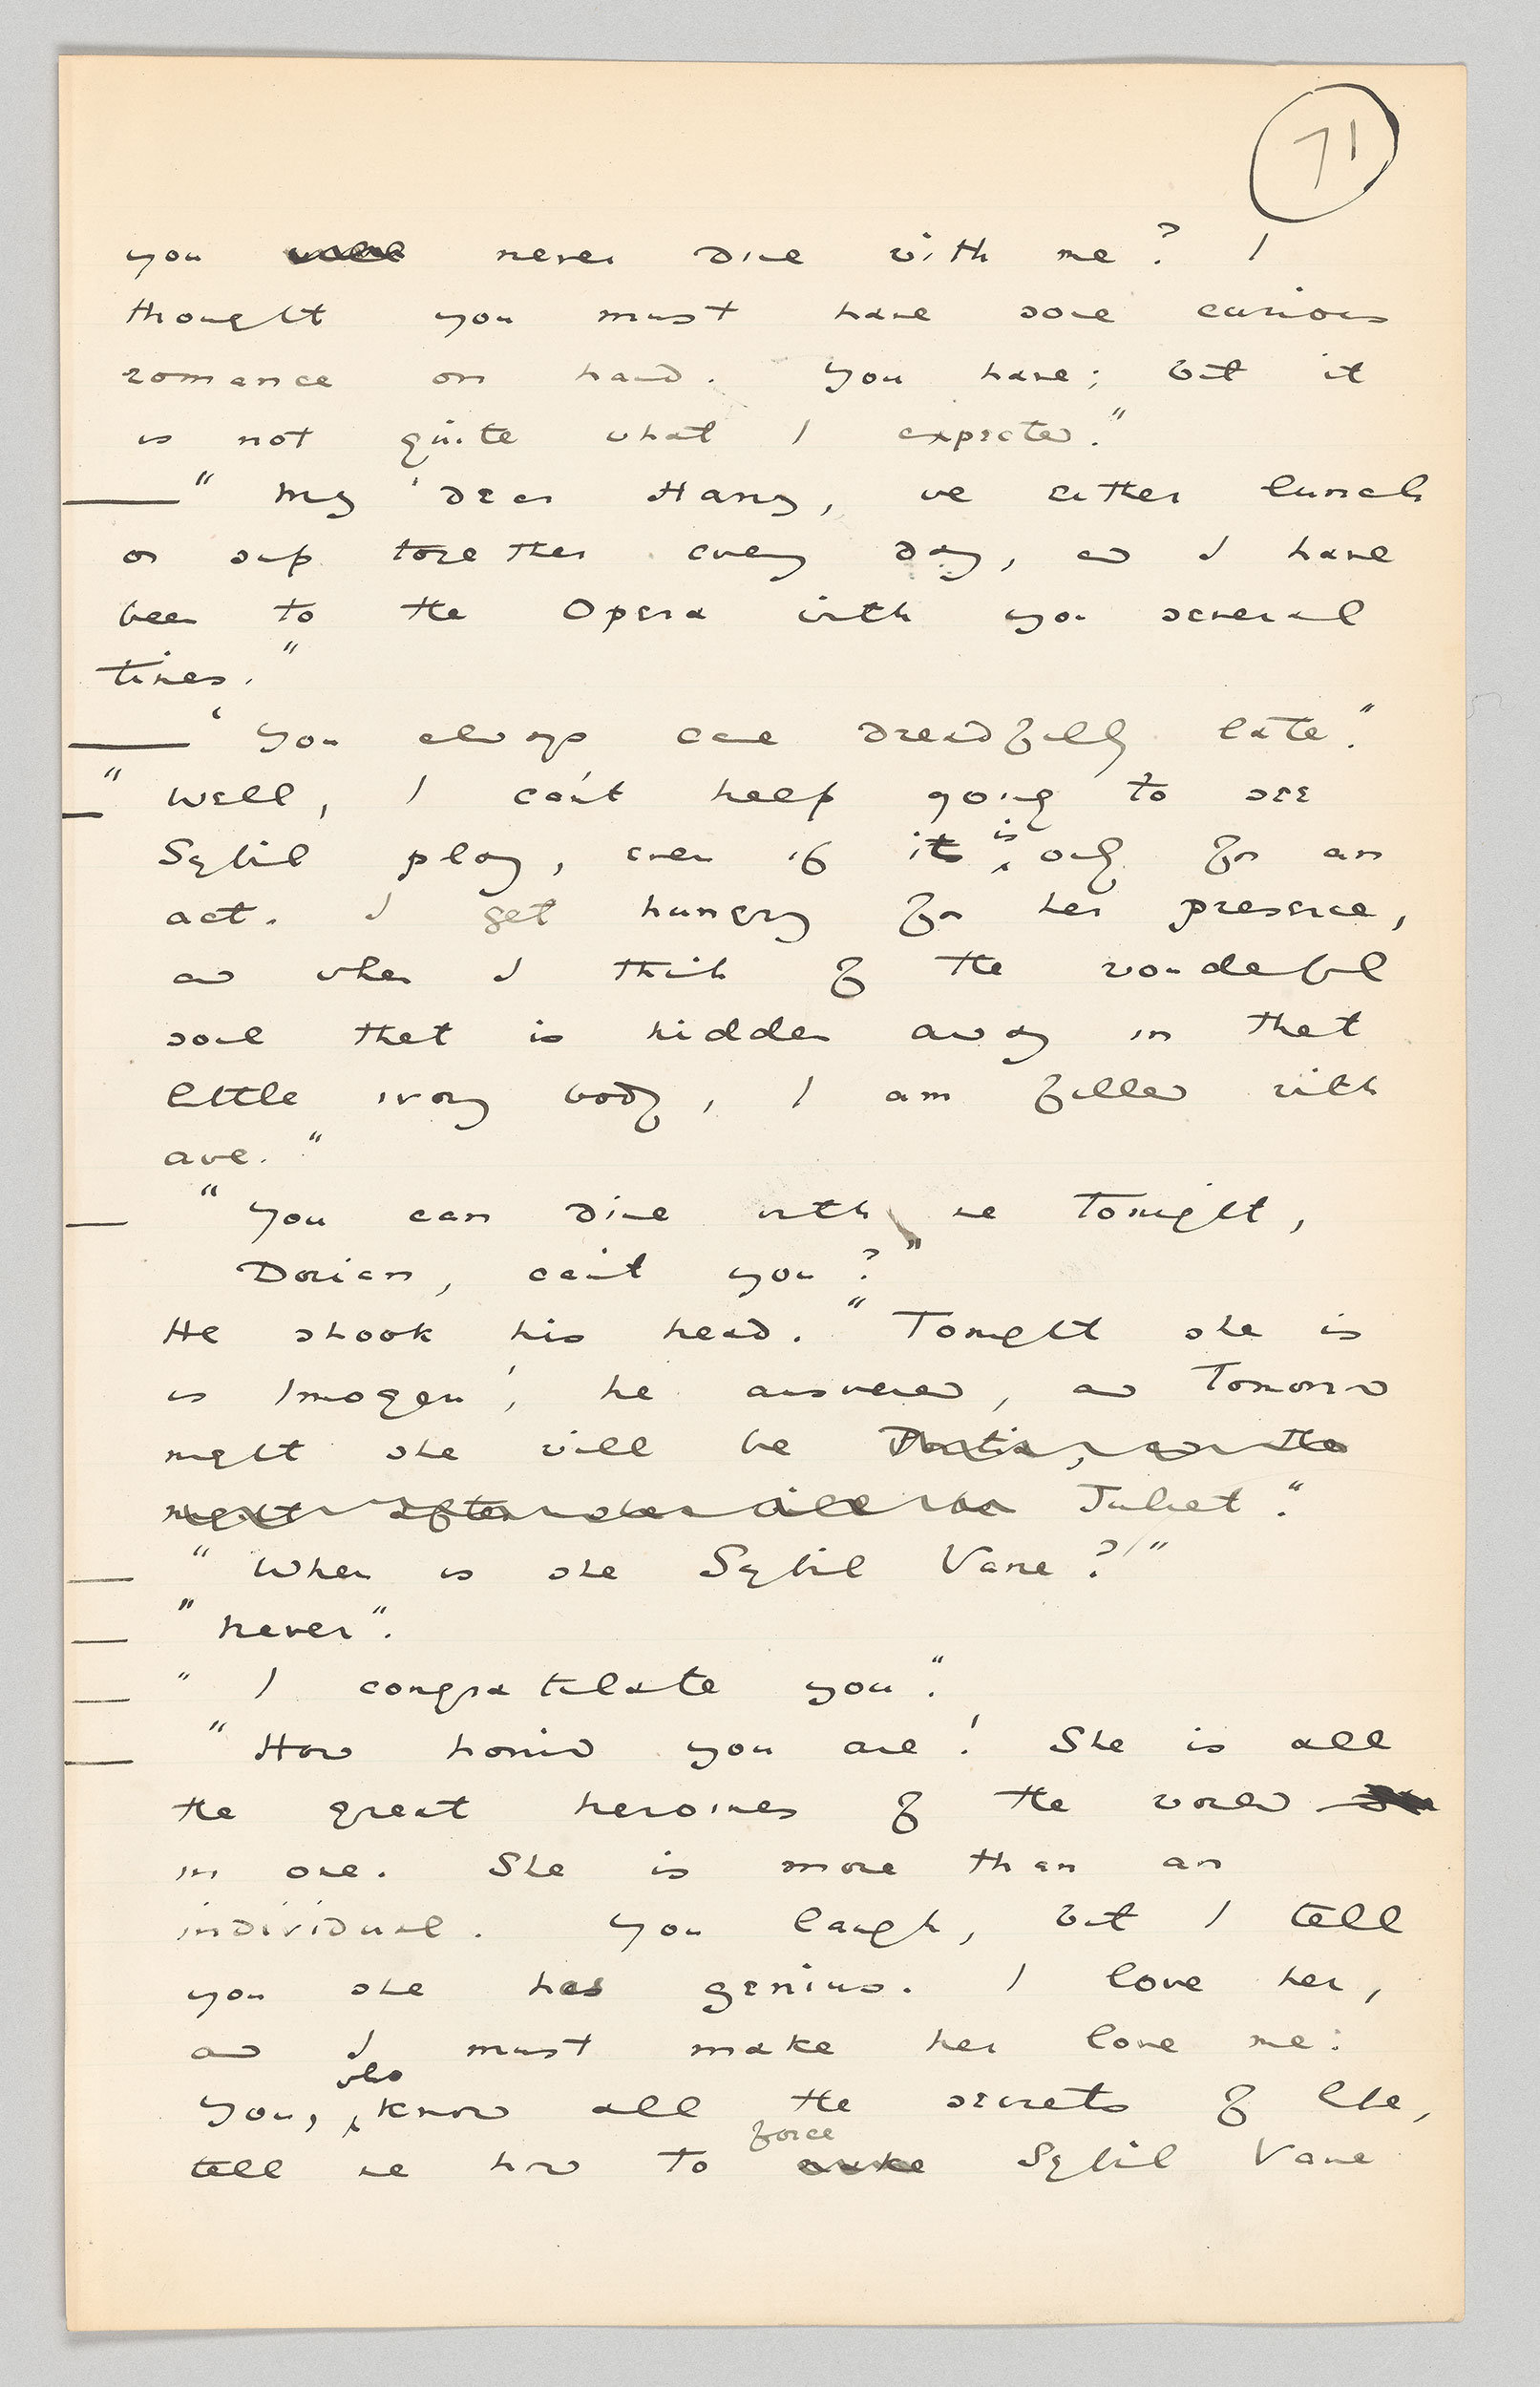 71
you never dine with me? I
thought you must have some curious
romance on hand. You have; but it
is not quite what I expected."
"My dear Harry, we either lunch
or sup together every day, and I have
been to the Opera with you several
times."
"You always come dreadfully late."
"Well, I can't help going to see
Sybil play, even if it is only for an
act. I get hungry for her presence,
and when I think of the wonderful
soul that is hidden away in that
little ivory body, I am filled with
awe."
"You can dine with me tonight,
Dorian, can't you?"
He shook his head. "Tonight she is
is Imogen', he answered, and Tomorrow
night she will be Portia, and the
night after she will be Juliet".
"When is she Sybil Vane?"
"Never".
"I congratulate you".
"How horrid you are! She is all
the great heroines of the world
in one. She is more than an
individual. You laugh, but I tell
you she has genius. I love her,
and I must make her love me:
you, who know all the secrets of life,
tell me how to force make Sybil Vane